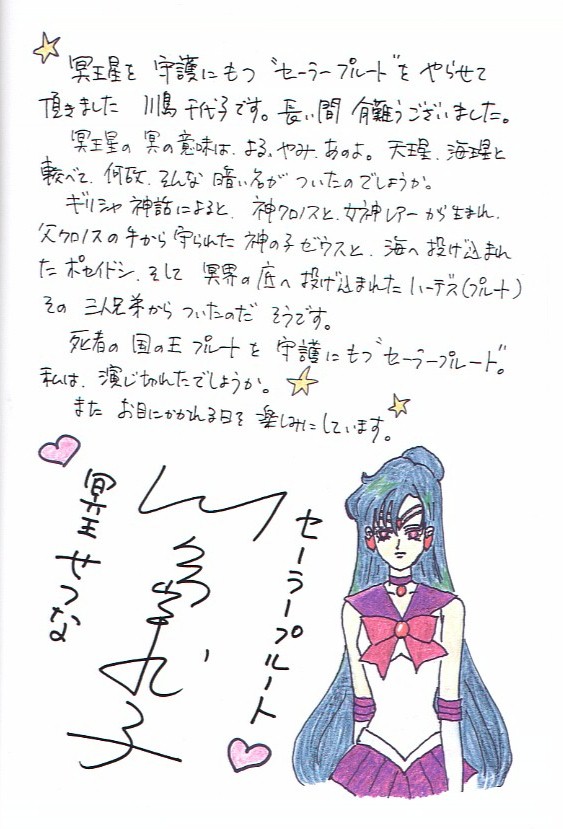 冥王星を 守護にもつ “セーラープルート”を やらせて
頂きました 川島 千代子です。長い間 有難うございました。
冥王星の 冥の意味は、よる、やみ、あのよ。天王星、海王星と
較べて、何故、そんな 暗い名が ついたのでしょうか。
ギリシャ 神話によると、神クロノスと、女神レアーから生まれ、
父クロノスの手から 守られた 神の子ゼウスと、海へ投げ込まれ
た ポセイドン、そして 冥界の底へ投げ込まれた ハーデス(プルート)
その 三人兄弟から ついたのだ そうです。
死者の 国の王 プルートを 守護にもつ “セーラープルート”。
私は、演じ切れたでしょうか。
また お目にかかれる日を 楽しみにしています。
セーラープルート
川島千代子
冥王せつな